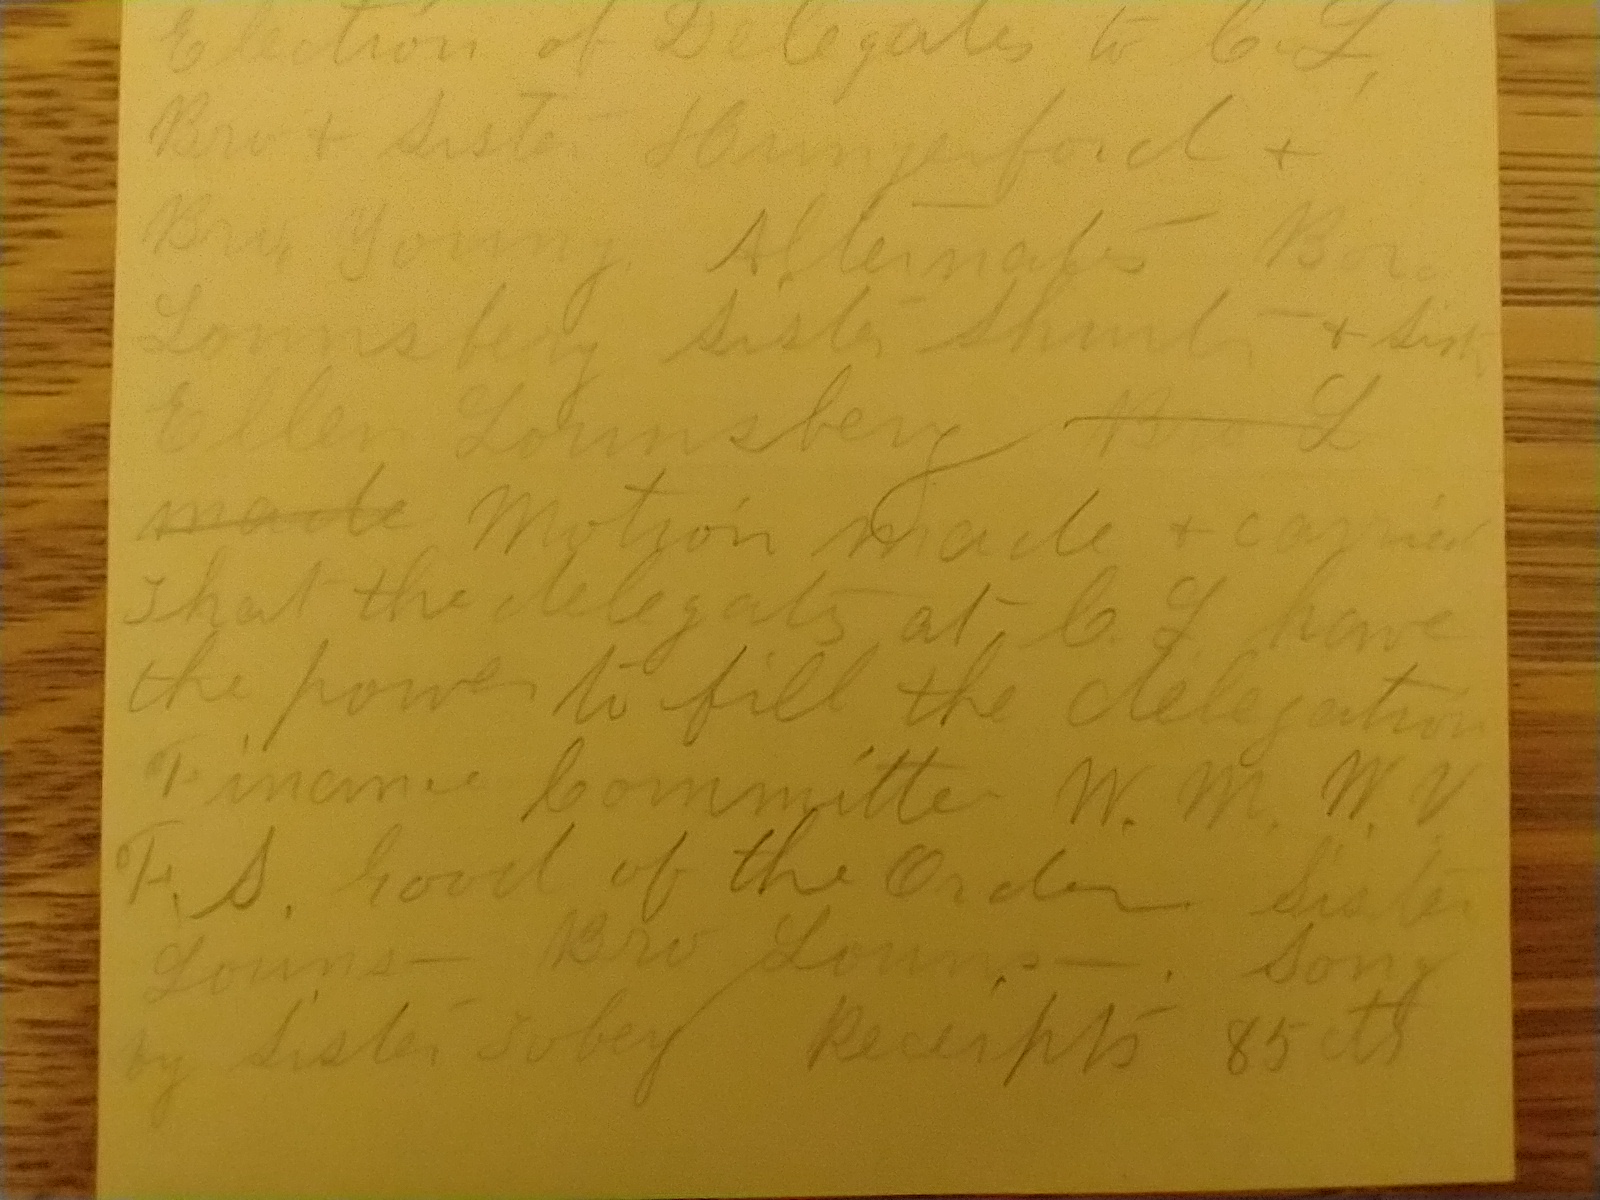 Election of Delegates to C. L,
Bro + Sister Hungerford +
Bro, Young. Alternates Bro.
Lounsbery Sister Shurter + Sist
Ellen Lounsbery Bro L
made Motion made + carried
That the delegats at C. L have
the power to fill the delegation
Finance Committee W. M. W. V.
F. S. Good of the Order Sister
Louns— Bro Louns—. Song
by Sister Tobey Receipts 85 cts